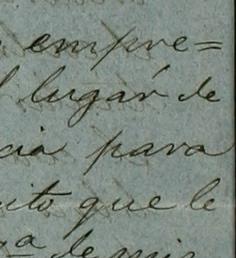 empre=
lugár de
cia para
ito que le
de mis